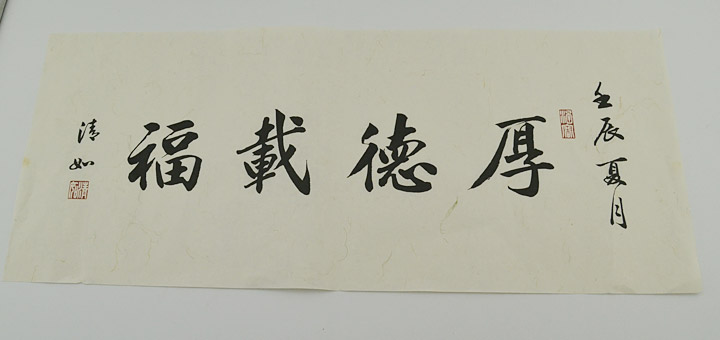 壬辰夏月
厚德載福
清如